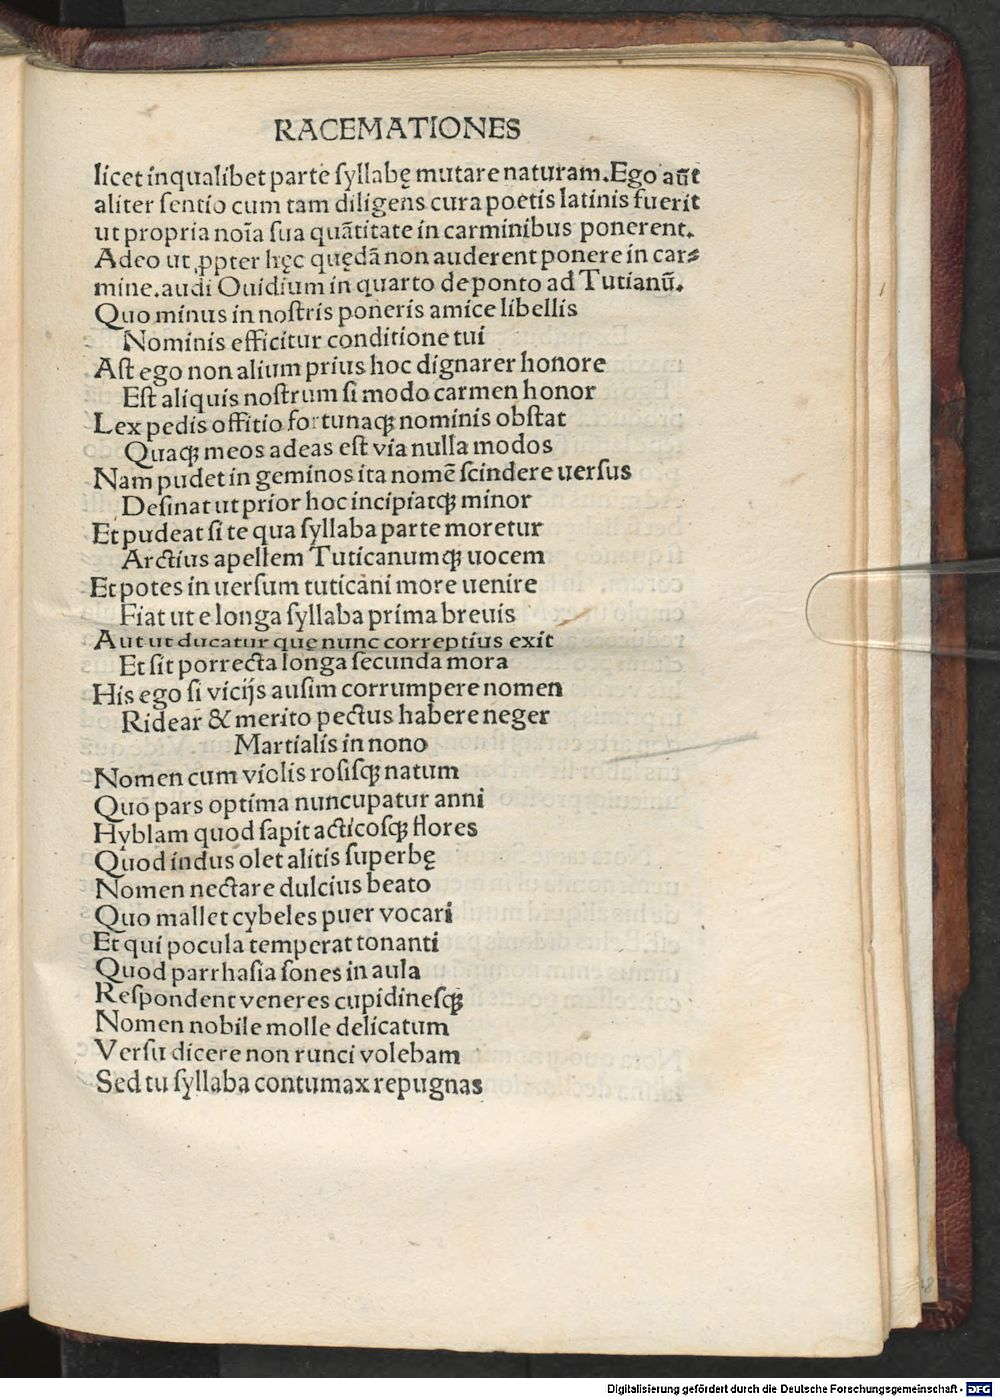 RACEMATIONES
licet inqualibet parte ſyllabę mutare naturam. Ego aūt
aliter ſentio cum tam diligens cura poetis latinis fuerit
ut propria noīa ſua quātitate in carminibus ponerent.
Adeo ut ꝓpter hęc quędā non auderent ponere in car⸗
mine. audi Ouidium in quarto de ponto ad Tutianū.
Quo minus in noſtris poneris amice libellis
Nominis efficitur conditione tui
Aſt ego non alium prius hoc dignarer honore
Eſt aliquis noſtrum ſi modo carmen honor
Lex pedis offitio fortunaqꝫ nominis obſtat
Quaqꝫ meos adeas eſt via nulla modos
Nam pudet in geminos ita nomē ſcindere uerſus
Deſinat ut prior hoc incipiatqꝫ minor
Et pudeat ſi te qua ſyllaba parte moretur
Arctius apellem Tuticanumqꝫ uocem
Et potes in uerſum tuticani more uenire
Fiat ut e longa ſyllaba prima breuis
Aut ut ducatur que nunc correptius exit
Et ſit porrecta longa ſecunda mora
His ego ſi vicijs auſim corrumpere nomen
Ridear & merito pectus habere neger
Martialis in nono
Nomen cum violis roſiſqꝫ natum
Quo pars optima nuncupatur anni
Hyblam quod ſapit acticoſqꝫ flores
Quod indus olet alitis ſuperbę
Nomen nectare dulcius beato
Quo mallet cybeles puer vocari
Et qui pocula temperat tonanti
Quod parrhaſia ſones in aula
Reſpondent veneres cupidineſqꝫ
Nomen nobile molle delicatum
Verſu dicere non runci volebam
Sed tu ſyllaba contumax repugnas
Digitalisierung gefördert durch die Deutsche Forschungsgemeinschaft - DFG